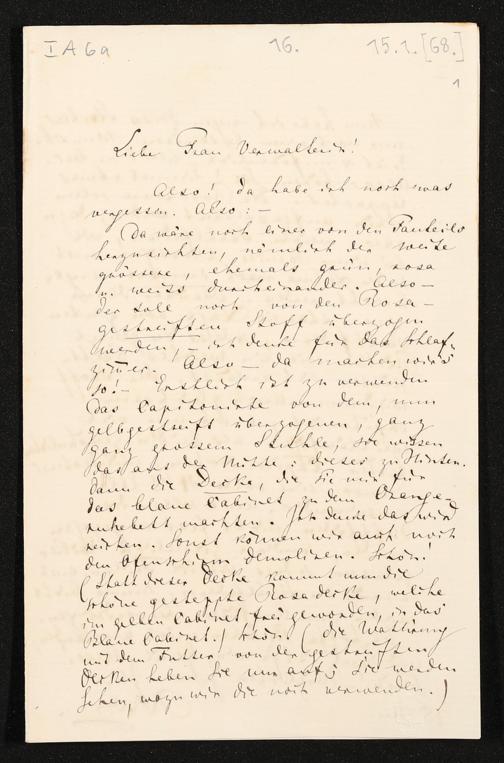 I A 6a 16. 15.1.[68.]
1
Liebe Frau Verwalterin!
Also! da habe ich noch was
vergessen. Also: —
Da wäre noch einer von den Fauteils
herzurichten, nämlich der weite
grössere, ehemals grün, rosa
u. weiss durcheinander. Also —
der solle noch von den Rosa-
gestreiften Stoff überzogen
werden, — ich denke für das Schlaf-
zimmer. Also — da machen wir's
so! — Erstlich ist zu verwenden
das Capitonirte von dem, nun
gelbgestreift überzogenen, ganz
ganz grossem Stuhle, Sie wissen
das aus der Mitte: dieses zu Hinten.
Dann die Decke, die Sie mir für
das blaue Cabinet zu dem Orange-
ruhebett machten. Ich denke das wird
reichen. Sonst können wir auch noch
den Ofenschirm demoliren. Schön!
(Statt dieser Decke kommt nun die
schöne gesteppte Rosadecke, welche
im gelben Cabinet frei geworden, in das
Blaue Cabinet.) Schön (Die Wattirung
mit dem Futter von der gestreiften
Decken heben Sie nur auf; Sie werden
sehen, wozu wir die noch verwenden.)